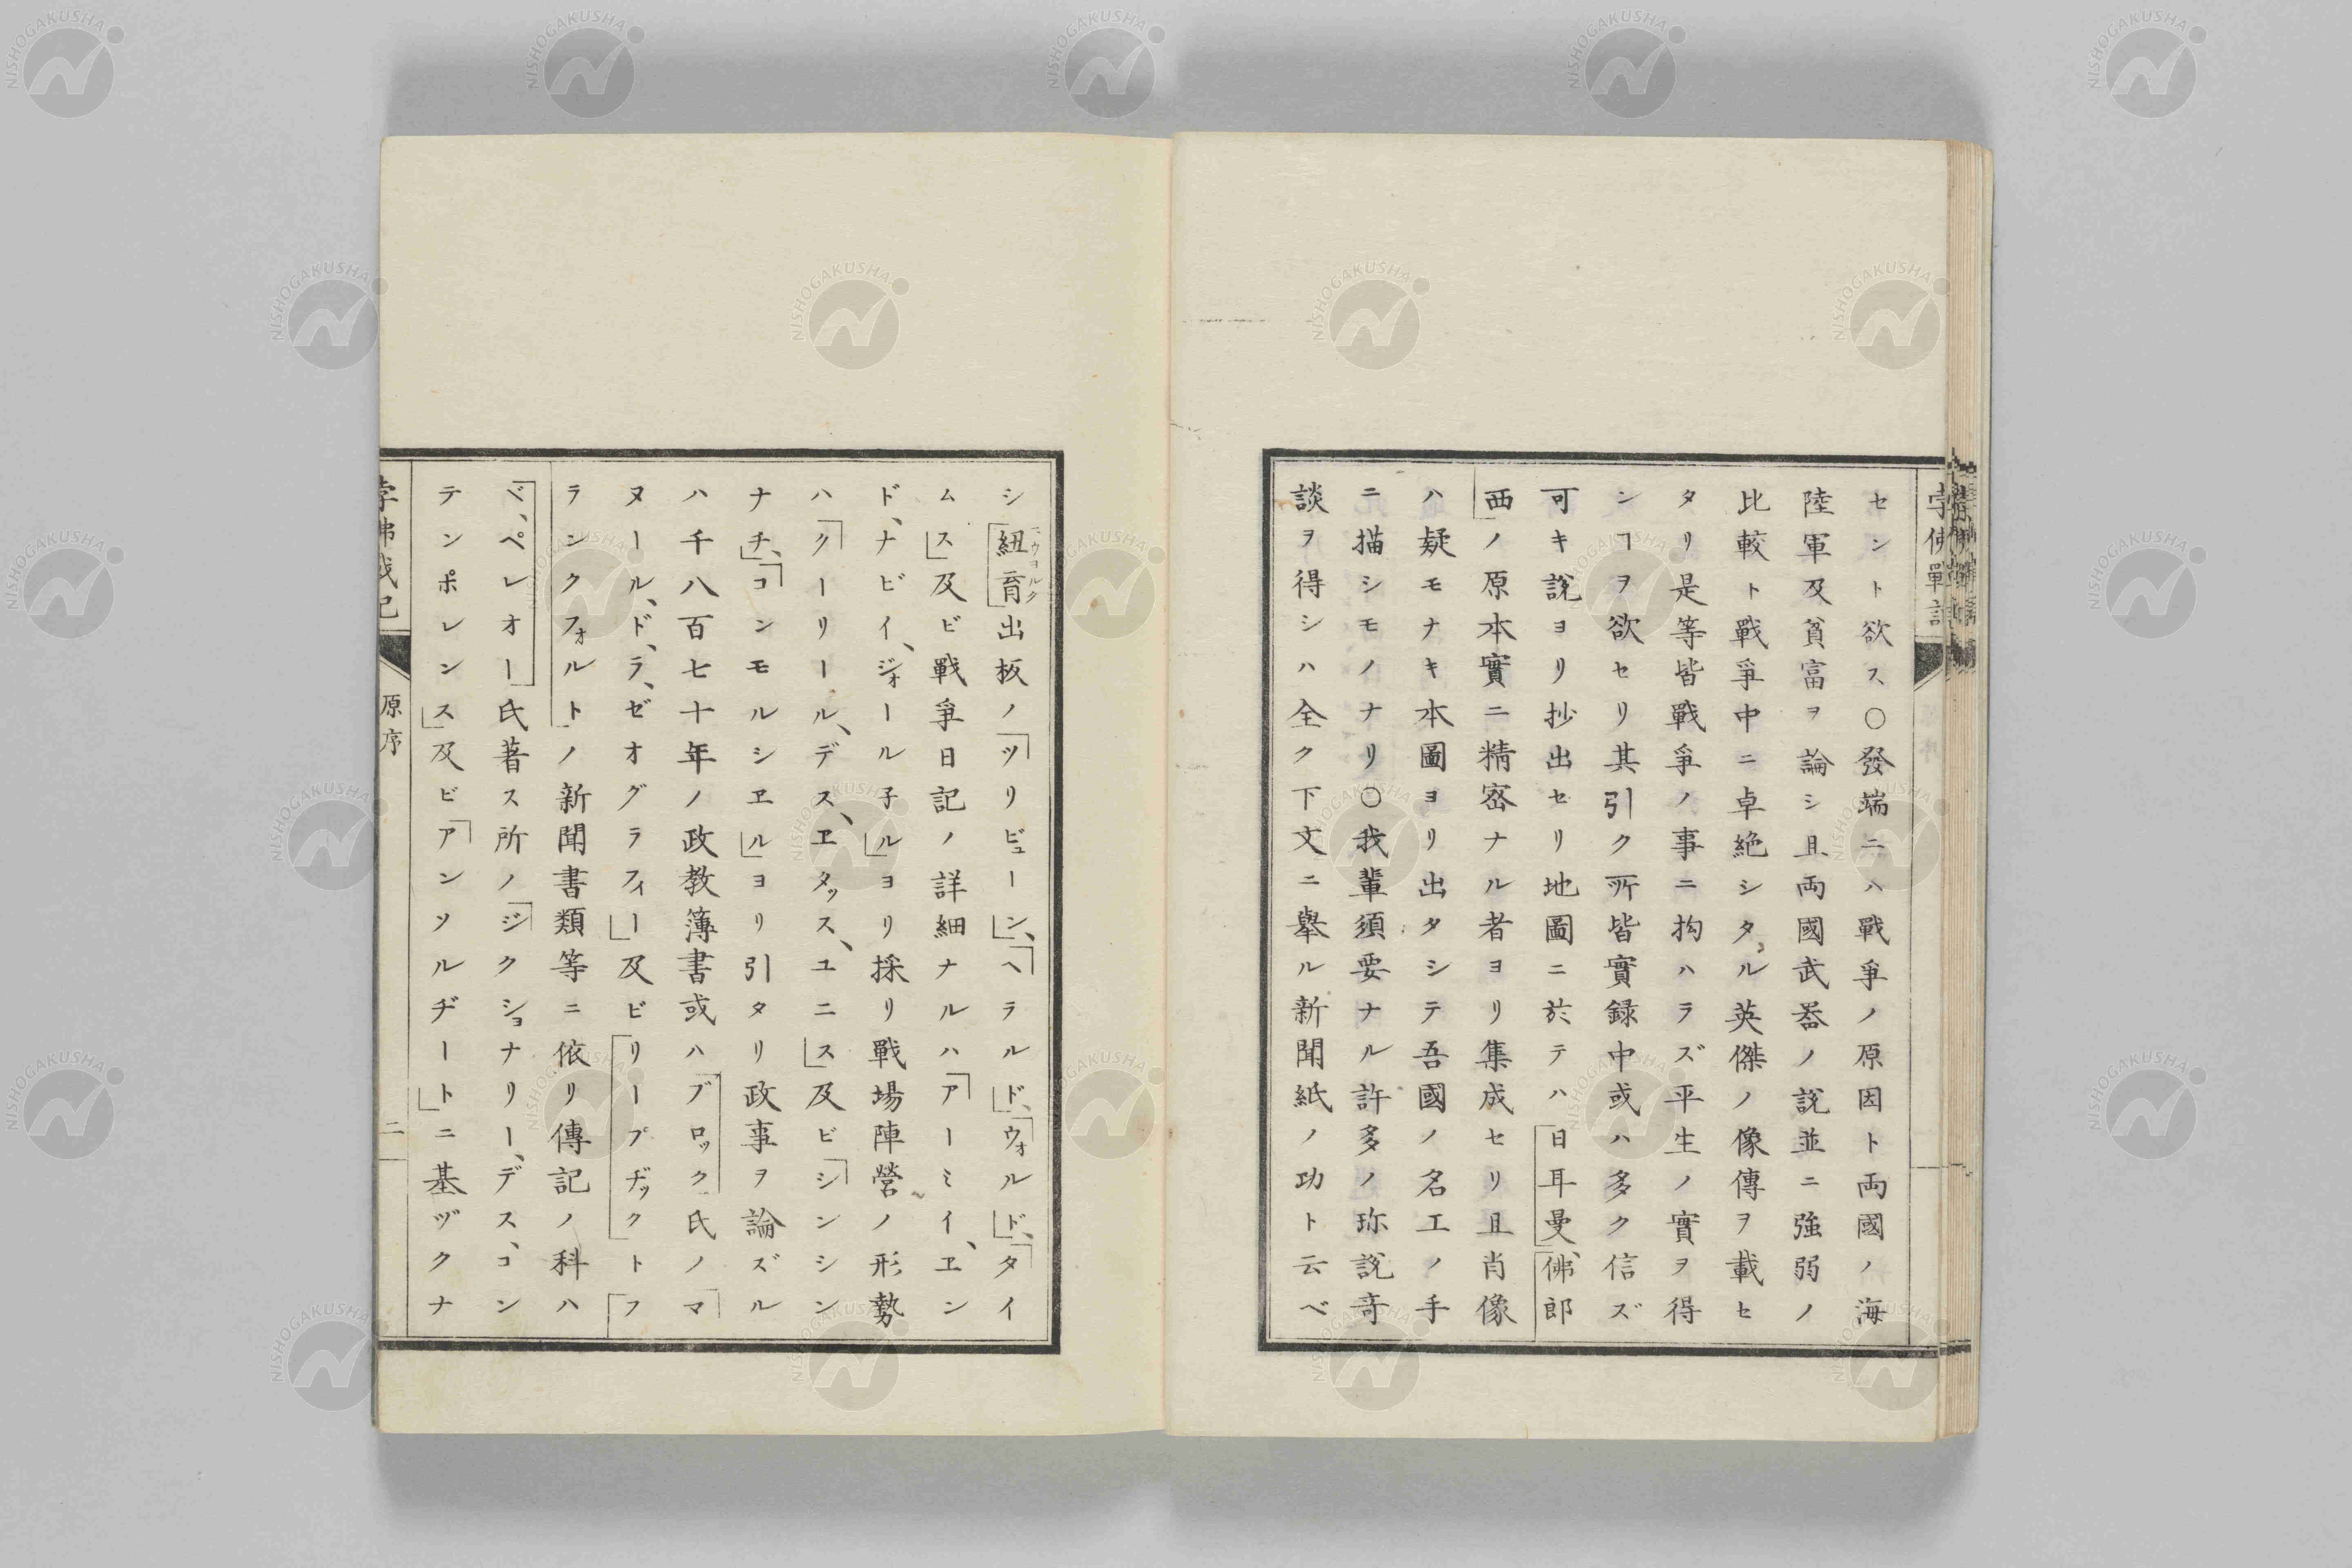 セント欲ス〇發端ニハ戰爭ノ原因ト両國ノ海
陸軍及貧富ヲ論シ且両國武器ノ說並ニ強弱ノ
比較ト戰爭中ニ卓絶シタル英傑ノ像傳ヲ載セ
タリ是等皆戰爭ノ事ニ拘ハラズ平生ノ實ヲ得
ンヿヲ欲セリ其引ク所皆實録中或ハ多ク信ズ
可キ說ヨリ抄出セリ地圖ニ於テハ日耳曼、佛郎
西ノ原本實ニ精密ナル者ヨリ集成セリ且肖像
ハ疑モナキ本圖ヨリ出タシテ吾國ノ名工ノ手
ニ描シモノナリ〇我輩須要ナル許多ノ珎說奇
談ヲ得シハ全ク下文ニ舉ル新聞紙ノ功ト云ベ
シ紐育出板ノ「ツリビューン」、「ヘラルド」、「ウォルド」、「タイ
ニウヨルク
ムス」及ビ戰爭日記ノ詳細ナルハ「アーミイ、エン
ド、ナビイ、ジォールネル」ヨリ採リ戰場陣營ノ形勢
ハ「クーリール、デス、エタッス、ユニス」及ビ「シンシン
ナチ」、「コンモルシエル」ヨリ引タリ政事ヲ論ズル
ハ千八百七十年ノ政教簿書或ハブロック氏ノ「マ
ヌール、ド、ラ、ゼオグラフィー」及ビリープヂックトフ
ランクフォルトノ新聞書類等ニ依リ傳記ノ科ハ
ベ、ペレオー氏著ス所ノ「ジクショナリー、デス、コン
テンポレンス」及ビ「アンソルヂート」ニ基ヅクナ
原序
二